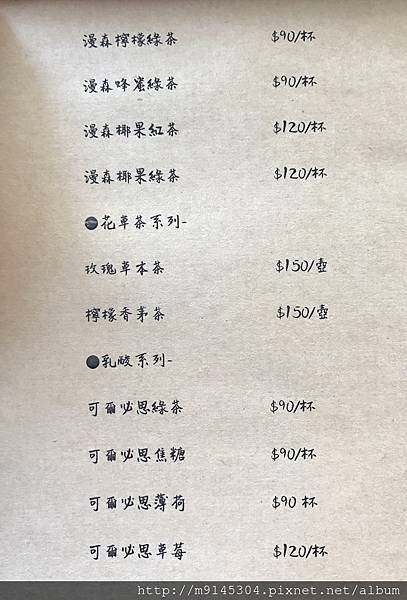 漫森檸檬綠茶 $90/杯
漫森蜂蜜綠茶 $90/杯
漫森椰果紅茶 $120/杯
漫森椰果綠茶 $120/杯
●花草茶系列-
玫瑰草本茶 $150/壺
檸檬香茅茶 $150/壺
●乳酸系列-
可爾必思綠茶 $90/杯
可爾必思焦糖 $90/杯
可爾必思薄荷 $90 杯
可爾必思草莓 $120/杯
http://m9145304.pixnet.net/album